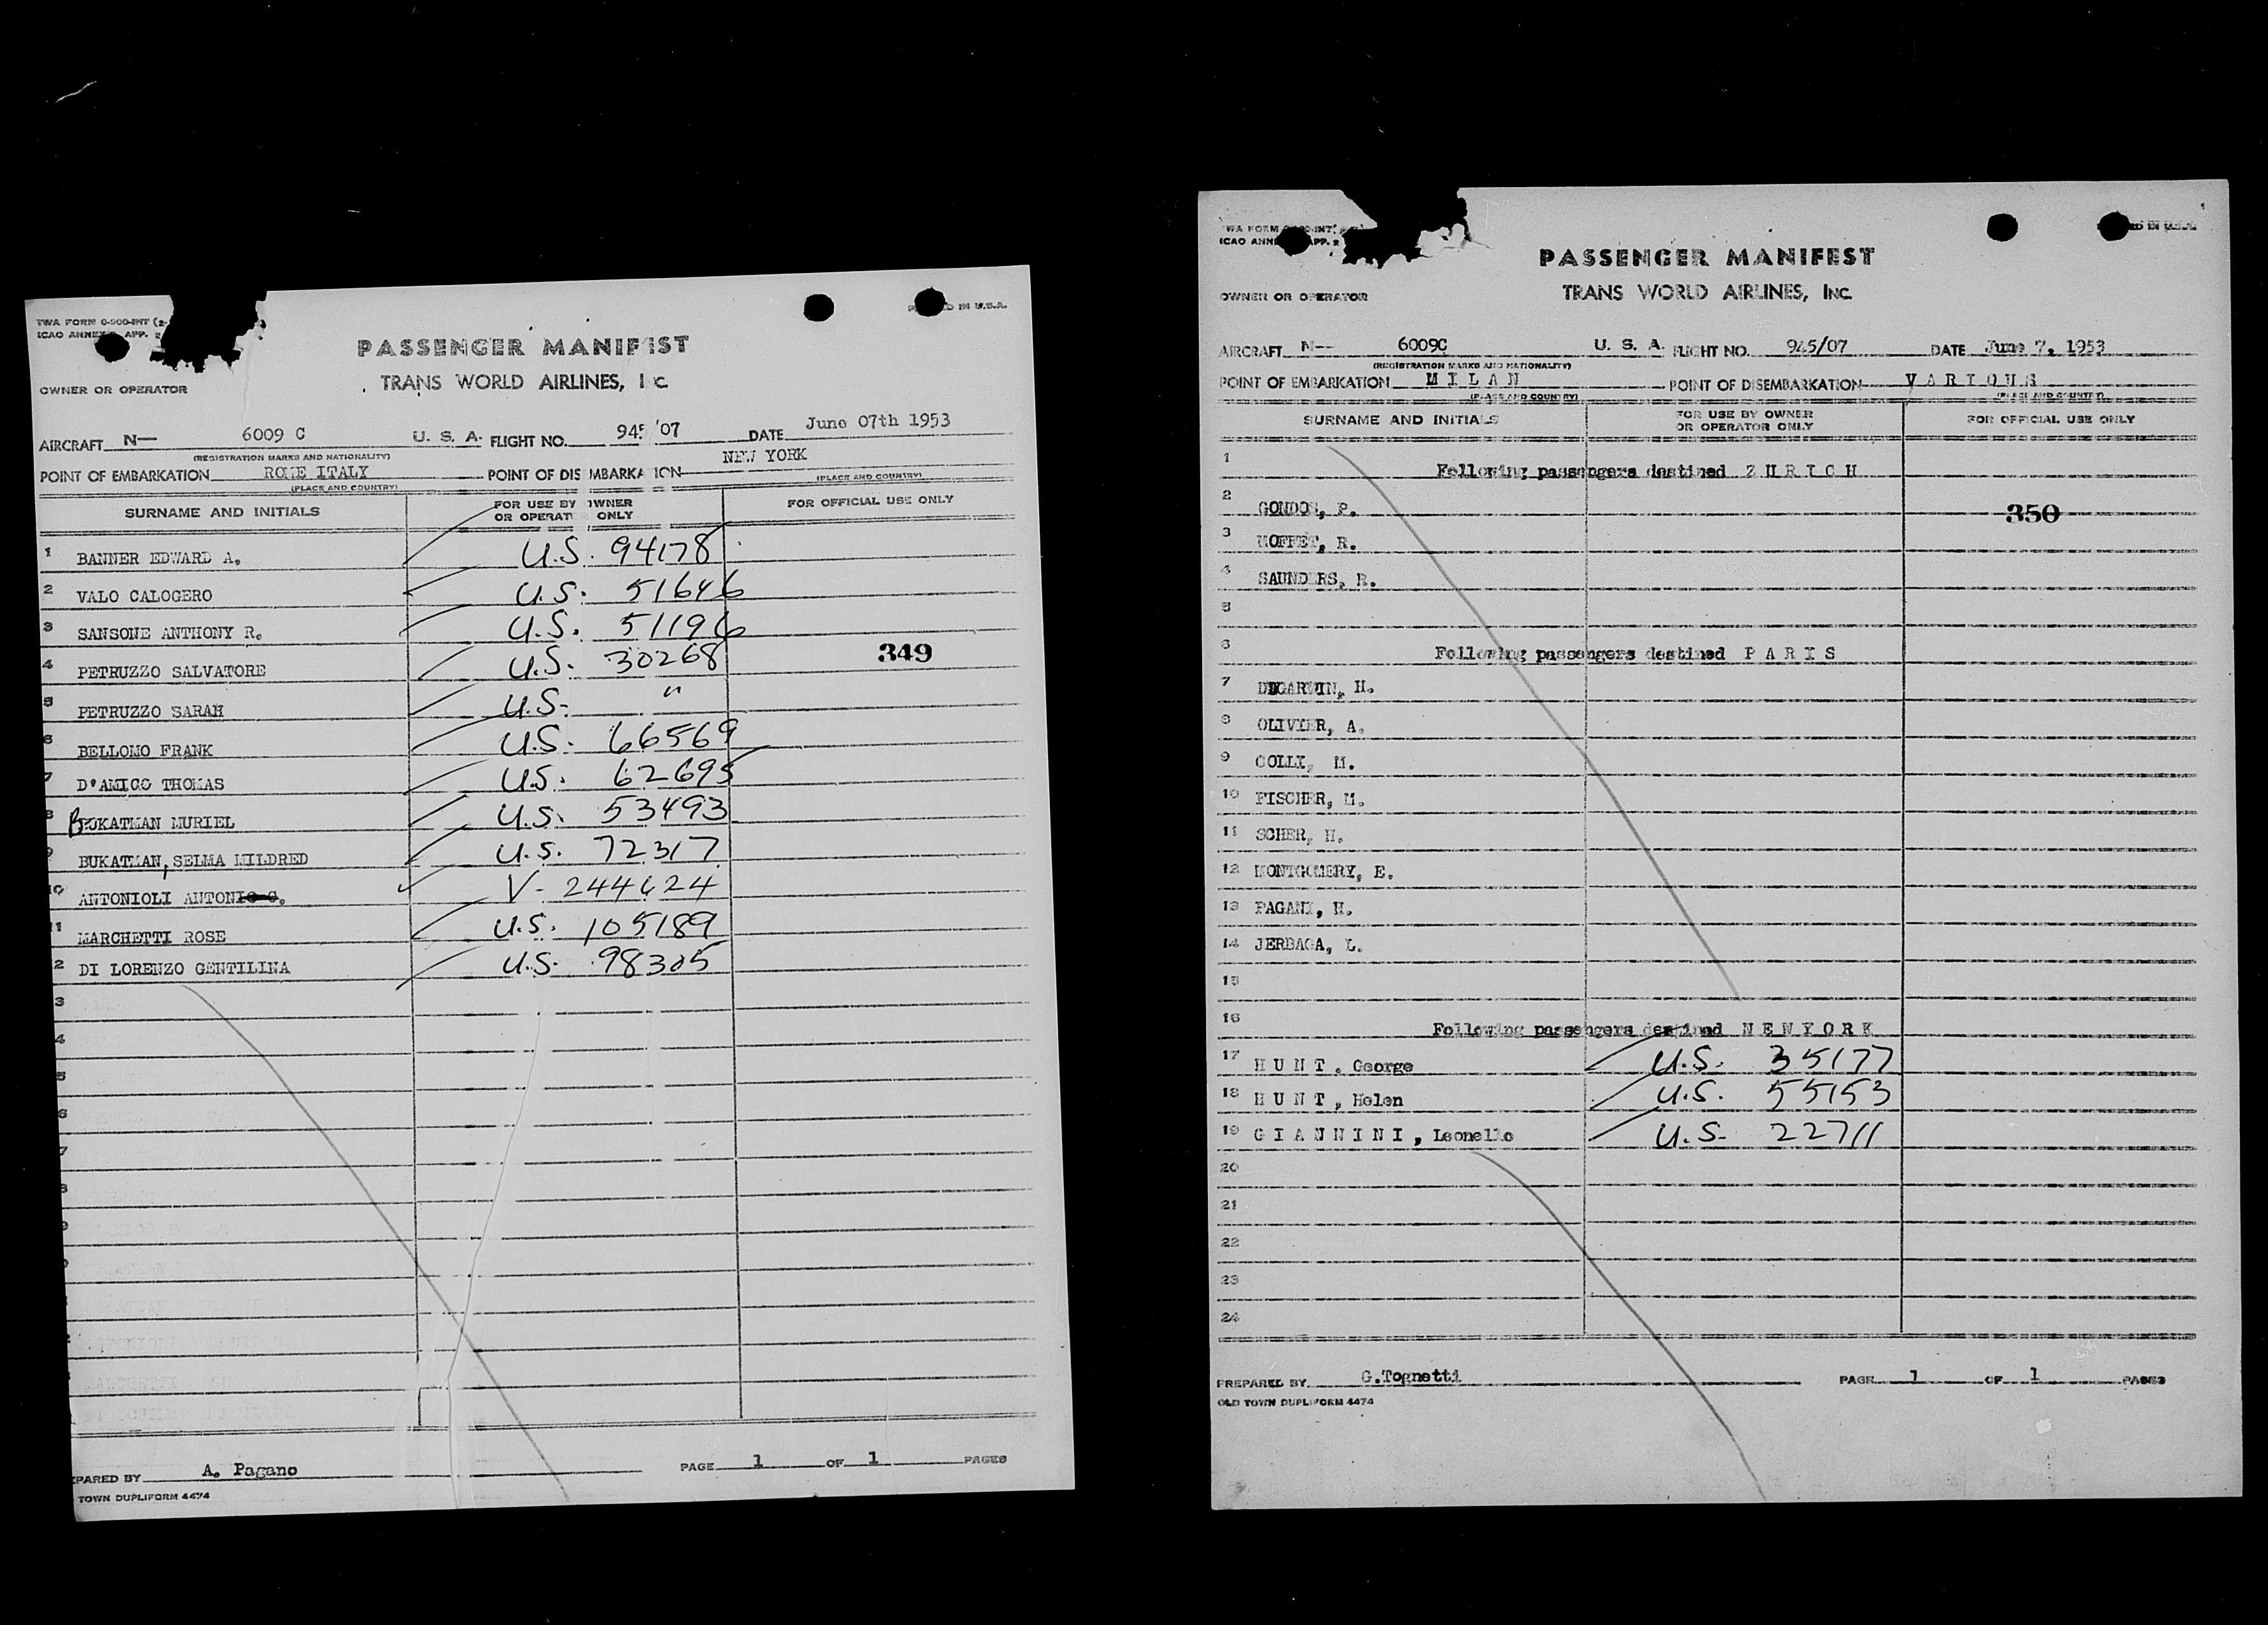 TWA FORM 0-900-INT (2-
ICAO ANNEX APP. 2
IN U.S.A.
PASSENGER MANIFEST
TRANS WORLD AIRLINES, Inc.
OWNER OR OPERATOR
AIRCRAFT N— 6009 C U. S. A. FLIGHT NO. 945/07 DATE June 07th 1953
(REGISTRATION MARKS AND NATIONALITY)
POINT OF EMBARKATION ROME ITALY POINT OF DISEMBARKATION NEW YORK
(PLACE AND COUNTRY) (PLACE AND COUNTRY)
SURNAME AND INITIALS FOR USE BY OWNER OR OPERATOR ONLY FOR OFFICIAL USE ONLY
1 BANNER EDWARD A. U.S. 94178
2 VALO CALOGERO U.S. 51646
3 SANSONE ANTHONY R. U.S. 51196
349
4 PETRUZZO SALVATORE U.S. 30268
5 PETRUZZO SARAH U.S. "
6 BELLOMO FRANK U.S. 66569
7 D'AMICO THOMAS U.S. 62695
8 BUKATMAN MURIEL U.S. 53493
9 BUKATMAN, SELMA MILDRED U.S. 72317
10 ANTONIOLI ANTONIO G. V- 244624
11 MARCHETTI ROSE U.S. 105189
2 DI LORENZO GENTILINA U.S. 98305
3
4
5
6
7
8
9
PARED BY A. Pagano PAGE 1 OF 1 PAGES
TOWN DUPLIFORM 4474
WA FORM
ICAO ANNE APP. 2
ED IN U.S.A.
PASSENGER MANIFEST
TRANS WORLD AIRLINES, Inc.
OWNER OR OPERATOR
AIRCRAFT N— 6009C U. S. A. FLIGHT NO. 945/07 DATE June 7, 1953
(REGISTRATION MARKS AND NATIONALITY)
POINT OF EMBARKATION M I L A N POINT OF DISEMBARKATION V A R I O U S
(PLACE AND COUNTRY) (PLACE AND COUNTRY)
SURNAME AND INITIALS FOR USE BY OWNER OR OPERATOR ONLY FOR OFFICIAL USE ONLY
1 Following passengers destined Z U R I C H
2 GONDOS, P. 350
3 MOFFET, R.
4 SAUNDERS, R.
5
6 Following passengers destined P A R I S
7 H.
8 OLIVIER, A.
9 COLLI, M.
10 FISCHER, M.
11 SCHER, H.
12 MONTGOMERY, E.
13 PAGANI, H.
14 JERBAGA, L.
15
16 Following passengers destined N E W Y O R K
17 H U N T , George U.S. 35177
18 H U N T , Helen U.S. 55153
19 G I A N N I N I , Leonello U.S. 22711
20
21
22
23
24
PREPARED BY G.Tognetti PAGE 1 OF 1 PAGES
OLD TOWN DUPLIFORM 4474